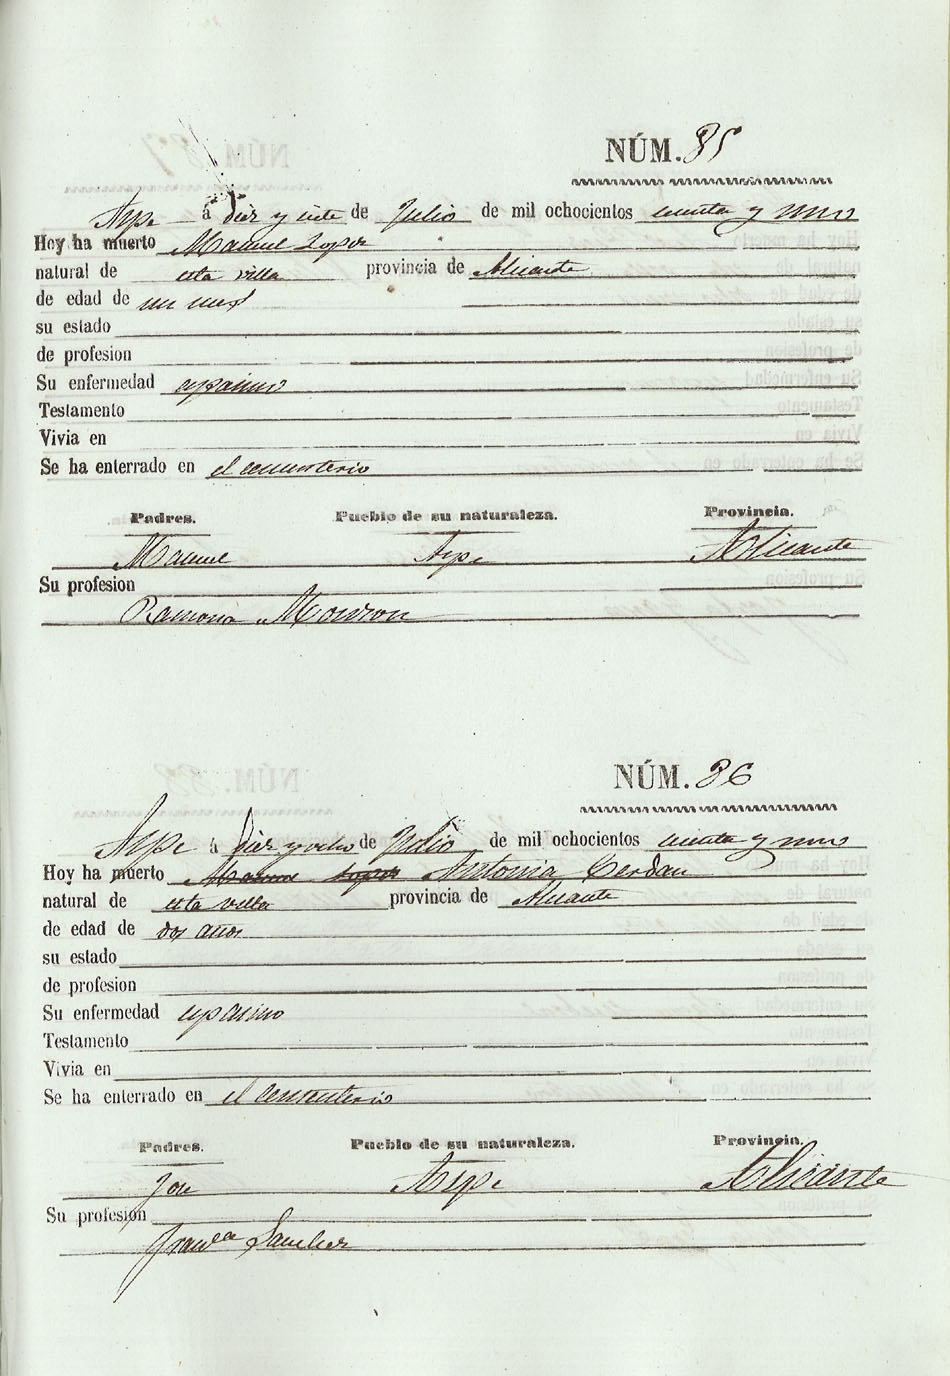 NÚM. 85
Aspe á diez y siete de Julio de mil ochocientos cuenta y uno
Hoy ha muerto Manuel Lopez
natural de esta villa provincia de Alicante
de edad de un mes
su estado
de profesion
Su enfermedad
Testamento
Vivia en
Se ha enterrado en el cementerio
Padres. Pueblo de su naturaleza. Provincia.
Manuel Aspe Alicante
Su profesion
Ramona
NÚM. 86
Aspe á diez y ocho de Julio de mil ochocientos cuenta y uno
Hoy ha muerto Manuel Lopez Antonia Cerdan
natural de esta villa provincia de Alicante
de edad de dos años
su estado
de profesion
Su enfermedad
Testamento
Vivia en
Se ha enterrado en el cementerio
Padres. Pueblo de su naturaleza. Provincia.
Jose Aspe Alicante
Su profesion
Franca Sanchez